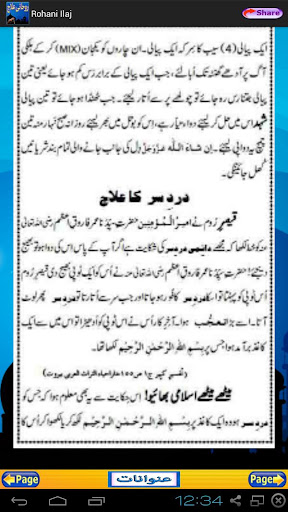 Rohani Ilaj
Share
ایک پیالی (4) سیب کا سرکہ ایک پیالی۔ ان چاروں کو یکجان (MIX) کر کے ہلکی
آگ پر آدھے گھنٹہ تک اُبالئے، ایک پیالی جب کم ہو جائے یعنی تین
پیالی جتنا رس رہ جائے تو چولھے پر سے اُتار لیجئے۔ جب ٹھنڈا ہو جائے تو تین پیالی
شہد اس میں حل کر لیجئے دوا تیار ہے، اس کو بوتل میں بھر لیجئے روزانہ صبح نہار منہ تین
چمچ یہ دوا پی لیجئے۔ اِن شاءَ اللہ عَزَّوَجَلَّ دل کی جانے والی تمام بند شریانیں
کھل جائینگی۔
دردِ سر کا علاج
قیصرِ رُوم نے امیرُ الْمُؤمِنین حضرتِ سیّدُنا عمر فاروقِ اعظم رضی اللہ تعالیٰ
عنہ کو خط لکھا کہ مجھے دائمی دردِ سر کی شکایت ہے اگر آپ کے پاس اس کی دوا ہو تو بھیج
دیجئے! حضرتِ سیّدُنا عمر فاروقِ اعظم رضی اللہ تعالیٰ عنہ نے اس کو ایک ٹوپی بھیج دی قیصرِ روم
اُس ٹوپی کو پہنتا تو اس کا دردِ سر کافور ہو جاتا اور جب سر سے اُتارتا تو دردِ سر پھر لوٹ
آتا۔ اسے بڑا تعجُّب ہوا۔ آخرِ کار اُس نے اس ٹوپی کو اُدھیڑا تو اس میں سے ایک
کاغذ برآمد ہوا جس پر بِسْمِ اللہِ الرَّحْمٰنِ الرَّحِیْم لکھا تھا۔
میٹھے میٹھے اسلامی بھائیو! اس حکایت سے یہ بھی معلوم ہوا کہ جس کو
دردِ سر ہو وہ ایک کاغذ پر بِسْمِ اللہِ الرَّحْمٰنِ الرَّحِیْم لکھ کر یا لکھوا کر اُس کا
Page
عنوانات
Page
12:34